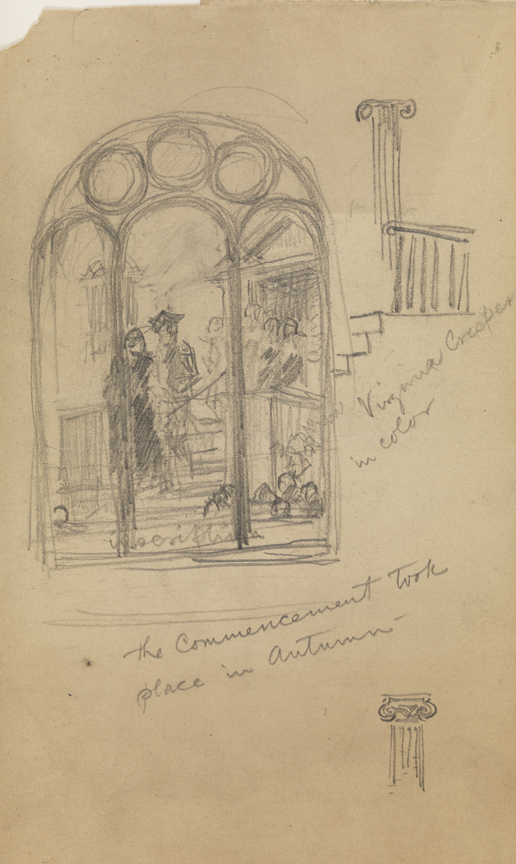 Virginia Creeper
in color
inscription
the Commencement took
place in Autumn